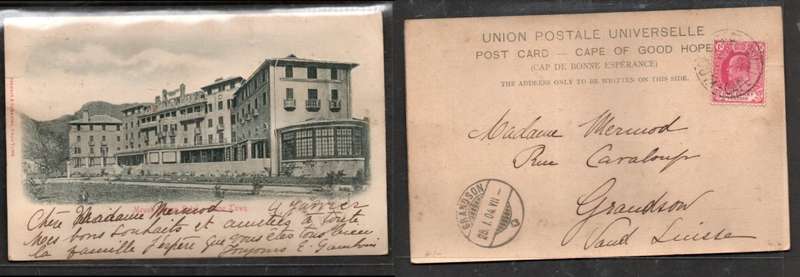 Chère Madame Mermod 9 Janvier
Mes bons souhaits et amitiés à toute
la famille j'espère que vous êtes tous bien
Toujours E.
UNION POSTALE UNIVERSELLE
POST CARD — CAPE OF GOOD HOPE
(CAP DE BONNE ESPÉRANCE)
THE ADDRESS ONLY TO BE WRITTEN ON THIS SIDE.
Madame Mermod
Rue
Grandson
Vaud Suisse
GRANDSON
04 VII